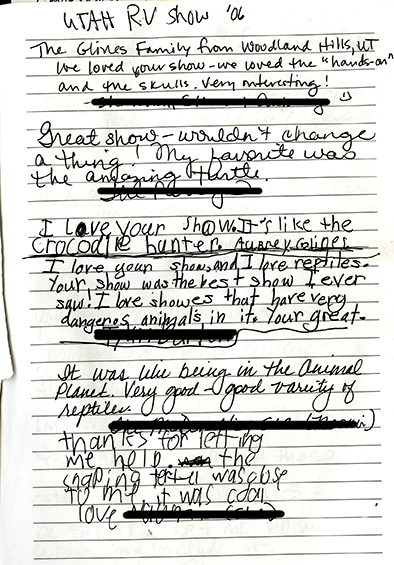 UTAH RV Show '06
The Glines Family from Woodland Hills, UT
We loved your show - we loved the "hands-on"
and the skulls. Very interesting!
Great show - wouldn't change
a thing! My favorite was
the amazing turtle.
I Love your show. It's like the
Crocodile hunter. Aubrey Glines
I love your show, and I love reptiles.
Your show was the best show I ever
saw! I love showes that have very
dangeros animals in it. Your great.
It was like being in the Animal
Planet. Very good - good variety of
reptiles.
thanks for letting
me help. the
snaping was close
to my it was cool
love